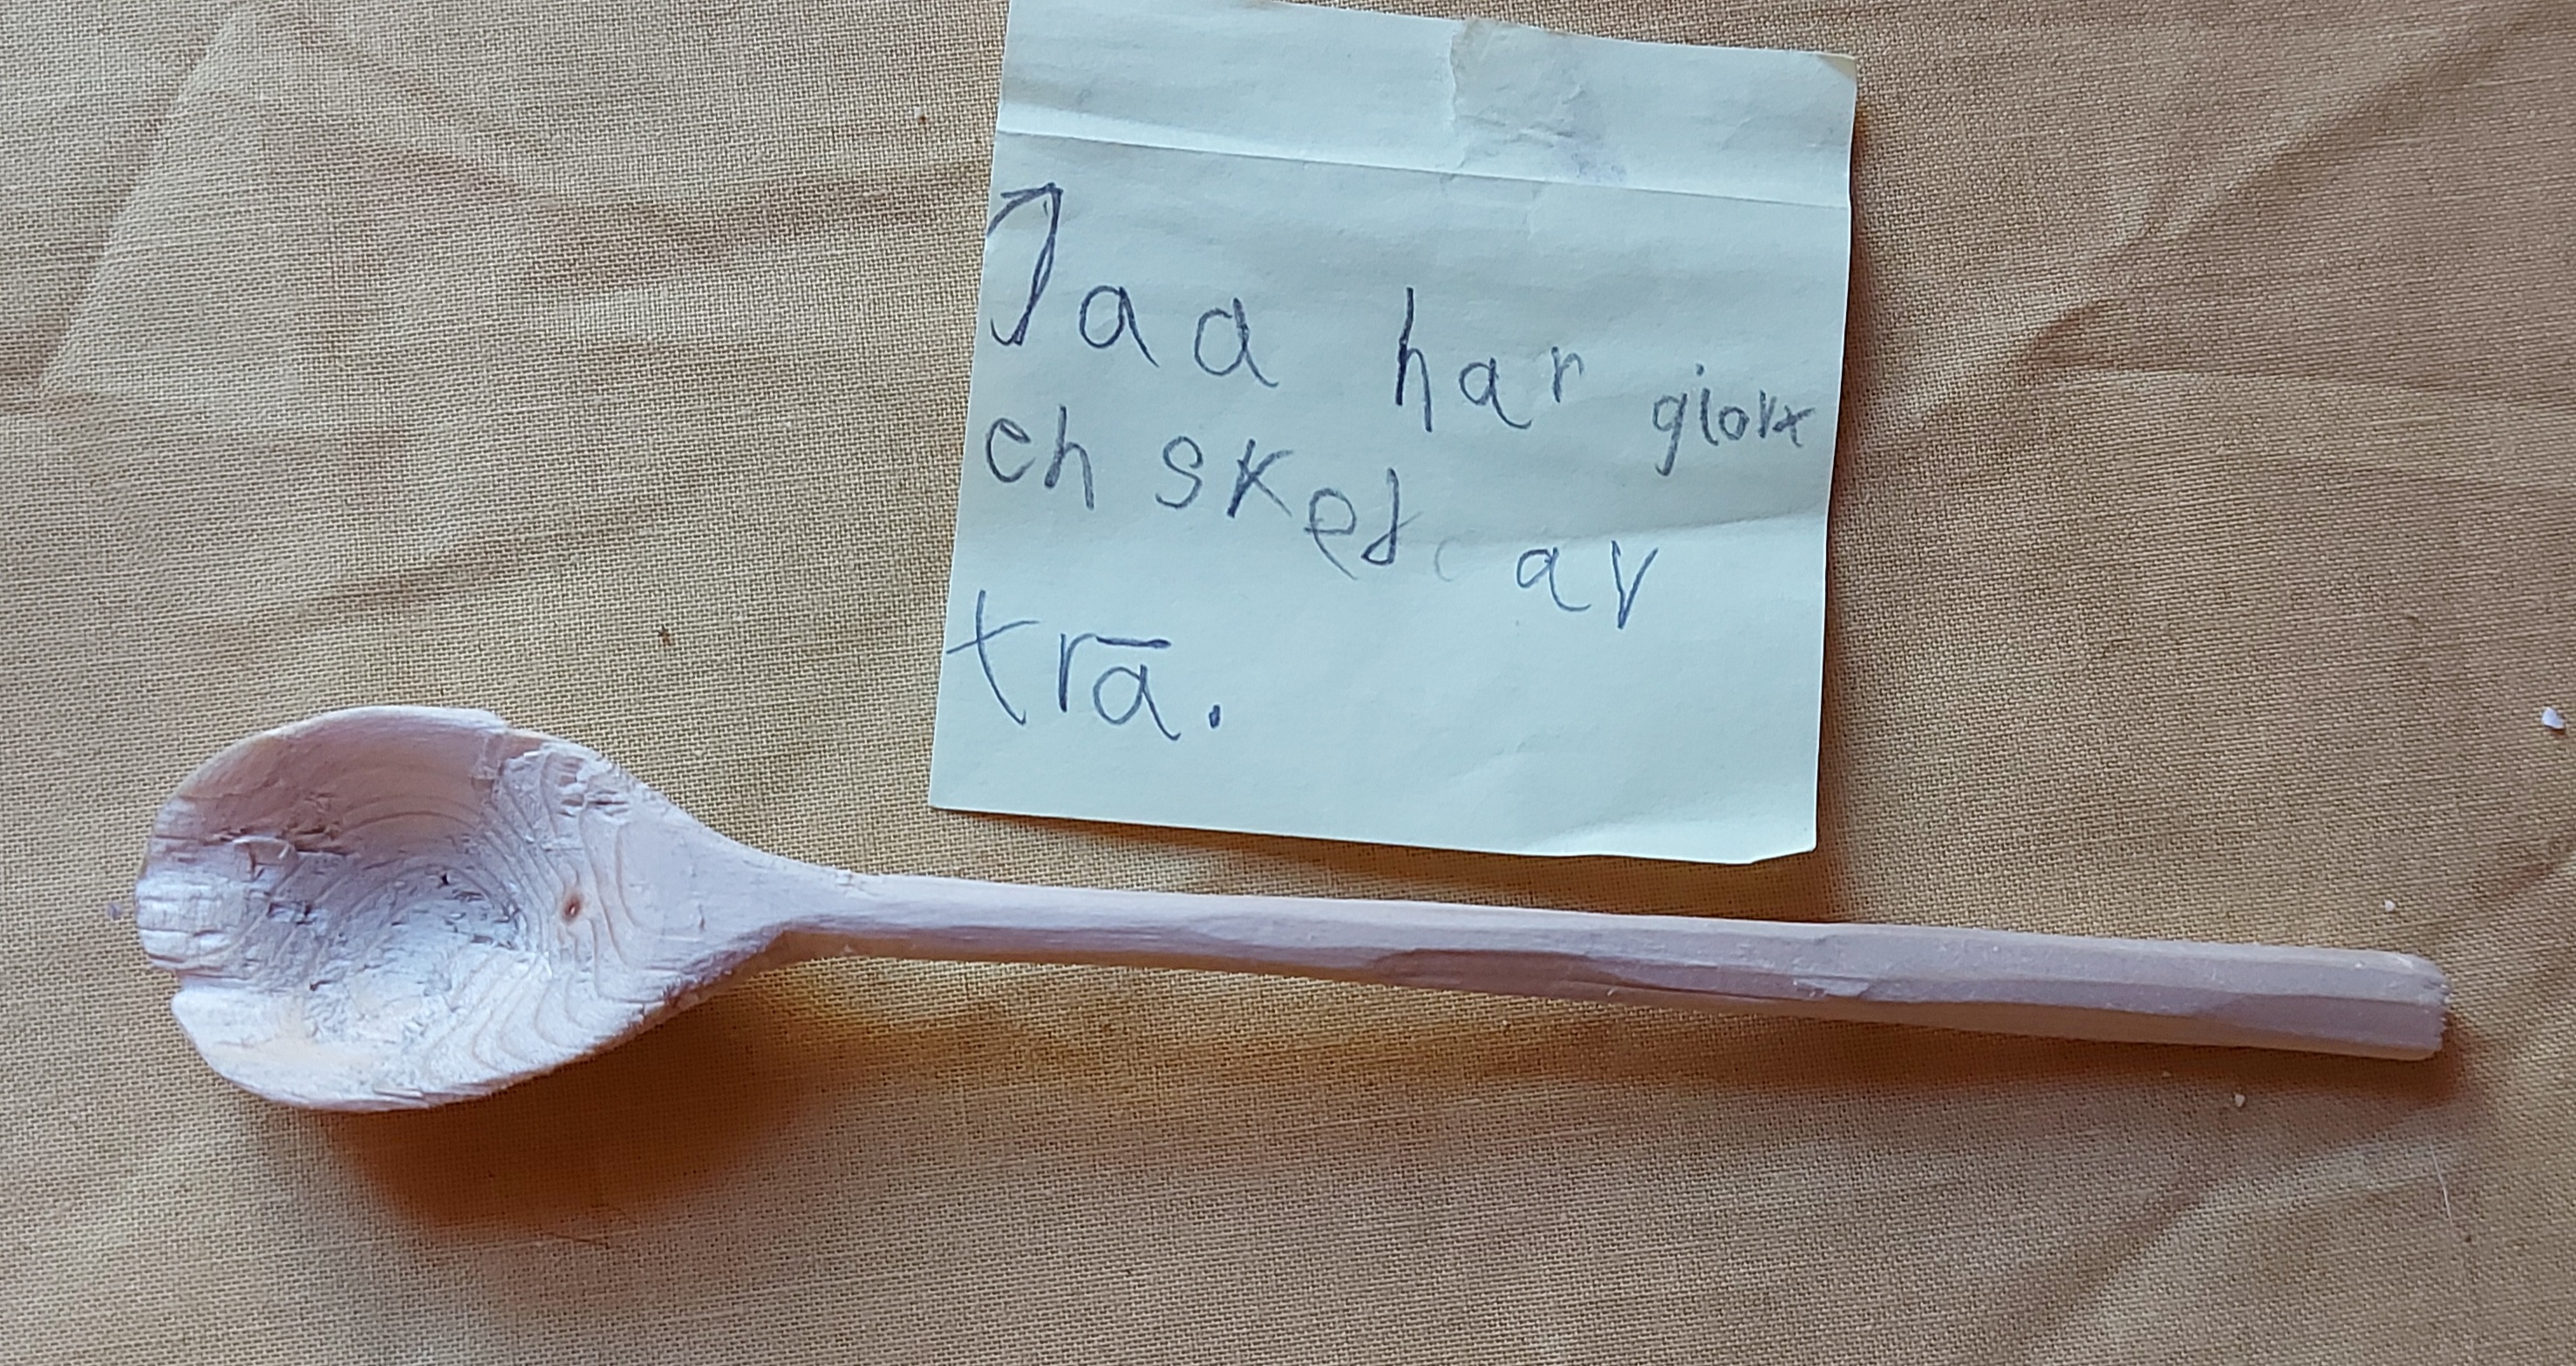 Jaa har giort
en sked av
trä.